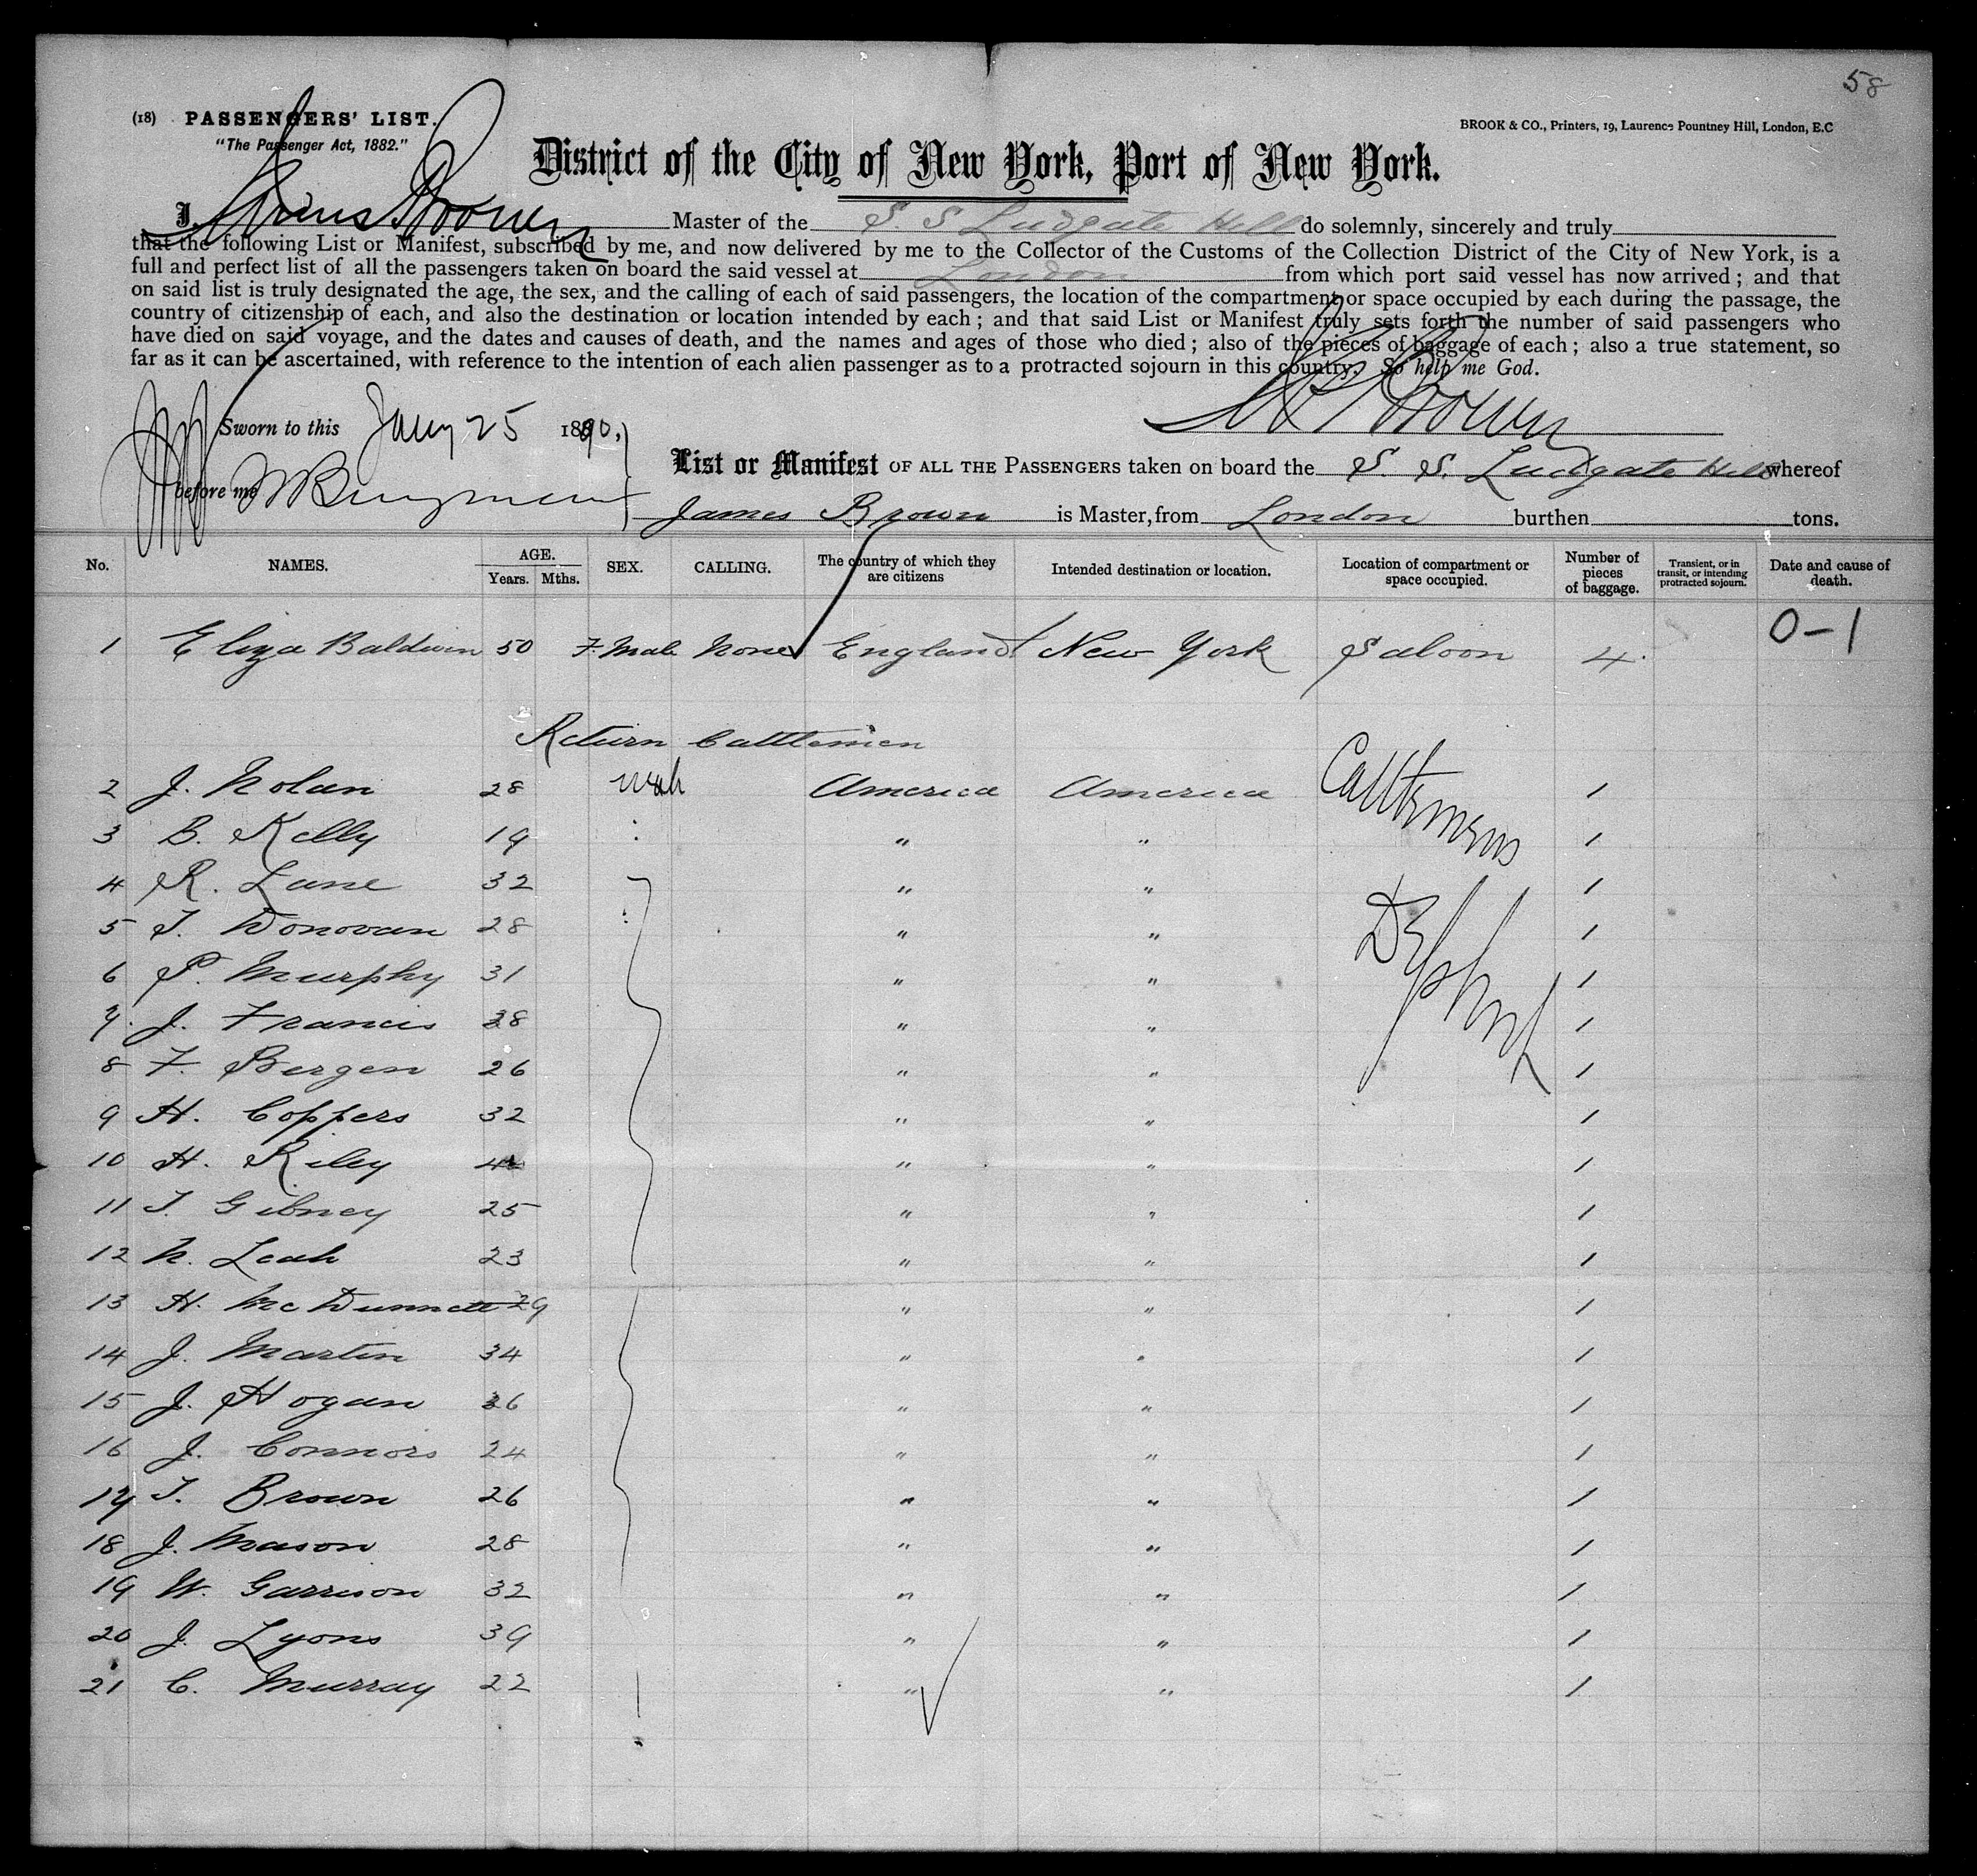 58
(18) PASSENGERS' LIST.
BROOK & CO., Printers, 19, Laurence Pountney Hill, London, E.C
"The Passenger Act, 1882."
District of the City of New York, Port of New York.
I, James Brown Master of the S S Ludgate Hill do solemnly, sincerely and truly
that the following List or Manifest, subscribed by me, and now delivered by me to the Collector of the Customs of the Collection District of the City of New York, is a
full and perfect list of all the passengers taken on board the said vessel at London from which port said vessel has now arrived; and that
on said list is truly designated the age, the sex, and the calling of each of said passengers, the location of the compartment or space occupied by each during the passage, the
country of citizenship of each, and also the destination or location intended by each; and that said List or Manifest truly sets forth the number of said passengers who
have died on said voyage, and the dates and causes of death, and the names and ages of those who died; also of the pieces of baggage of each; also a true statement, so
far as it can be ascertained, with reference to the intention of each alien passenger as to a protracted sojourn in this country. So help me God.
Brown
Sworn to this Jany 25 1890,
before me
List or Manifest OF ALL THE PASSENGERS taken on board the S. S. Ludgate Hill whereof
James Brown is Master, from London burthen tons.
No. NAMES. AGE. Years. Mths. SEX. CALLING. The country of which they are citizens Intended destination or location. Location of compartment or space occupied. Number of pieces of baggage. Transient, or in transit, or intending protracted sojourn. Date and cause of death.
0-1
1 Eliza Baldwin 50 F. Male None England New York Saloon 4.
Return Cattlemen
2 J. Nolan 28 America America Cattlemens 1
3 B. Kelly 19 " " 1
4 R. Lane 32 " " 1
5 T. Donovan 28 " " 1
6 P. Murphy 31 " " 1
7. J. Francis 38 " " 1
8 F. Bergen 26 " " 1
9 H. Coppers 32 " " 1
10 H. Riley " " 1
11 T. Gibney 25 " " 1
12 N. Leah 23 " " 1
13 H. 29 " " 1
14 J. Martin 34 " " 1
15 J. Hogan 36 " " 1
16 J. Connors 24 " " 1
17 T. Brown 26 " " 1
18 J. Mason 28 " " 1
19 W. Garrison 32 " " 1
20 J. Lyons 39 " " 1
21 C. Murray 22 " " 1